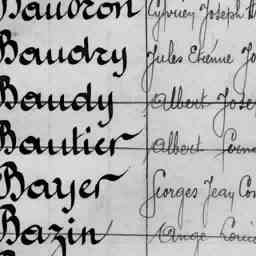 Baudron Cyprien Joseph
Baudry Jules Etienne
Baudy Albert
Bautier Albert
Bayer Georges Jean
Bazin Ange Louis